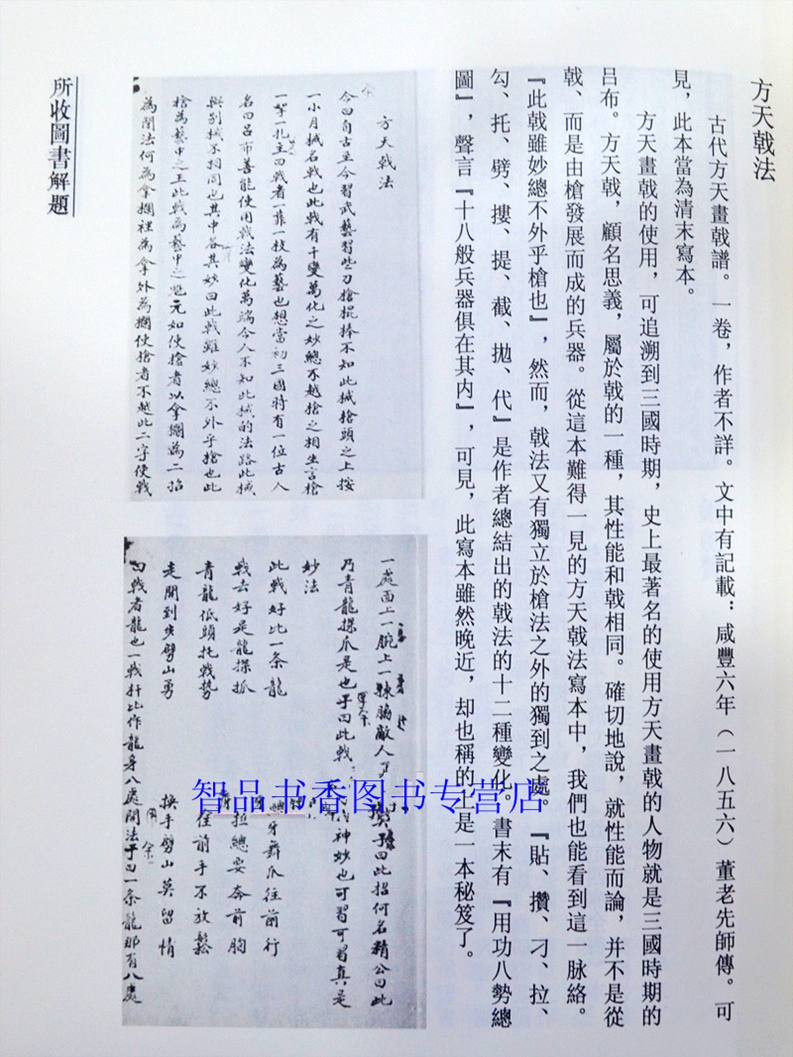 方天戟法
古代方天畫戟譜。一卷，作者不詳。文中有記載：咸豐六年（一八五六）董老先師傳。可
見，此本當為清末寫本。
方天畫戟的使用，可追溯到三國時期，史上最著名的使用方天畫戟的人物就是三國時期的
呂布。方天戟，顧名思義，屬於戟的一種，其性能和戟相同。確切地說，就性能而論，并不是從
戟、而是由槍發展而成的兵器。從這本難得一見的方天戟法寫本中，我們也能看到這一脉絡。
『此戟雖妙總不外乎槍也』，然而，戟法又有獨立於槍法之外的獨到之處。『貼、攢、刁、拉、
勾、托、劈、摟、提、截、拋、代』是作者總結出的戟法的十二種變化。書末有『用功八勢總
圖』，聲言『十八般兵器俱在其内』，可見，此寫本雖然晚近，却也稱的上是一本秘笈了。
方天戟法
今曰自古至今習武藝習些刀槍棍棒不知此械槍頭之上按
一小月械名戟也此戟有千變萬化之妙總不越槍之相生言槍
一拏一扎主曰戟者一靠一枝為藝也想當初三國時有一位古人
名曰呂布善能使用戟法變化萬端今人不知此械的法路此械
與別械不相同也其中各其妙曰此戟雖妙總不外乎槍也此
槍為藝中之王此戟為藝中之元如使槍者以拿攔為二
為開法何為拿攔裡為拿外為攔使槍者不越此二字使戟
一處面上一腕上一脇敵人曰此招何名精公曰此
乃青龍探爪是也子曰此戟神妙也可習可習真是
妙法
此戟好比一条龍 牙舞爪往前行
戟去好是龍探抓 拉總要奔前胸
青龍低頭托戟勢 往前手不放鬆
走開到步劈山勇 換手劈山莫留情
曰戟者龍也一戟扞比作龍身八處開法子曰一条龍那有八處
所收圖書解題
智品书香图书专营店